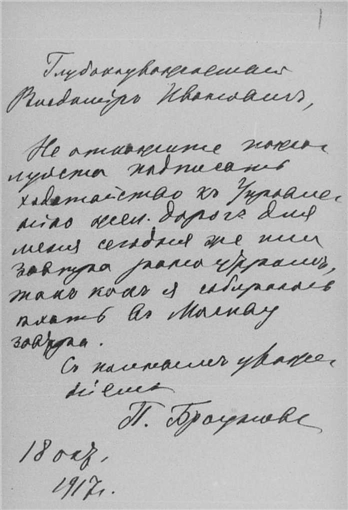 Глубокоуважаемый
Владимiръ Ивановичъ,
Не откажите пожа-
луйста подписать
ходатайство къ Управле-
нiю жел. дорогъ для
меня сегодня же или
завтра рано утромъ,
такъ какъ я собираюсь
ехать въ Москву
завтра.
Съ полнымъ уваже-
нiемъ
П. Броуновъ
18 окт.
1917 г.